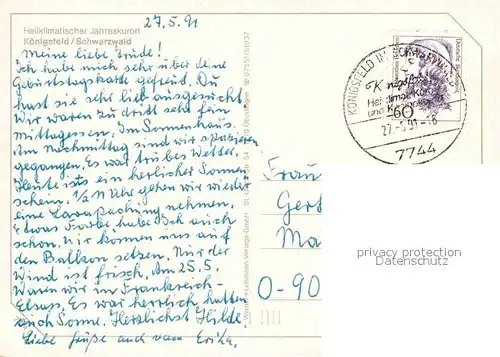 27.5.91
Heilklimatischer Jahreskurort
Königsfeld / Schwarzwald
Meine liebe Trude!
Ich habe mich sehr über deine
Geburtstagskarte gefreut. Du
hast sie sehr lieb ausgesucht
Wir waren zu dritt sehr fein
Mittagessen. Im Sonnenhaus.
Am Nachmittag sind wir spazieren
gegangen. Es war trübes Wetter.
Heute ists ein herlicher Sonnen
schein. 1/2 11 Uhr gehen wir wieder
eine Lavapackung nehmen.
Etwas Farbe habe Ich auch
schon. Wir können uns auf
den Balkon setzen. Nur der
Wind ist frisch. Am 25.5.
Waren wir im Frankreich-
Elsass. Es war herrlich hatten
auch Sonne. Herzlichst Hilde.
Liebe Grüße auch von Erika.
KÖNIGSFELD IM SCHWARZWALD
Königsfeld
Heilklimat. Kurort
und Kneippkurort
27.-5.91-18
7744
60
Deutsche Bundespost
Frau
Gert
Ma
O-90
privacy protection
Datenschutz